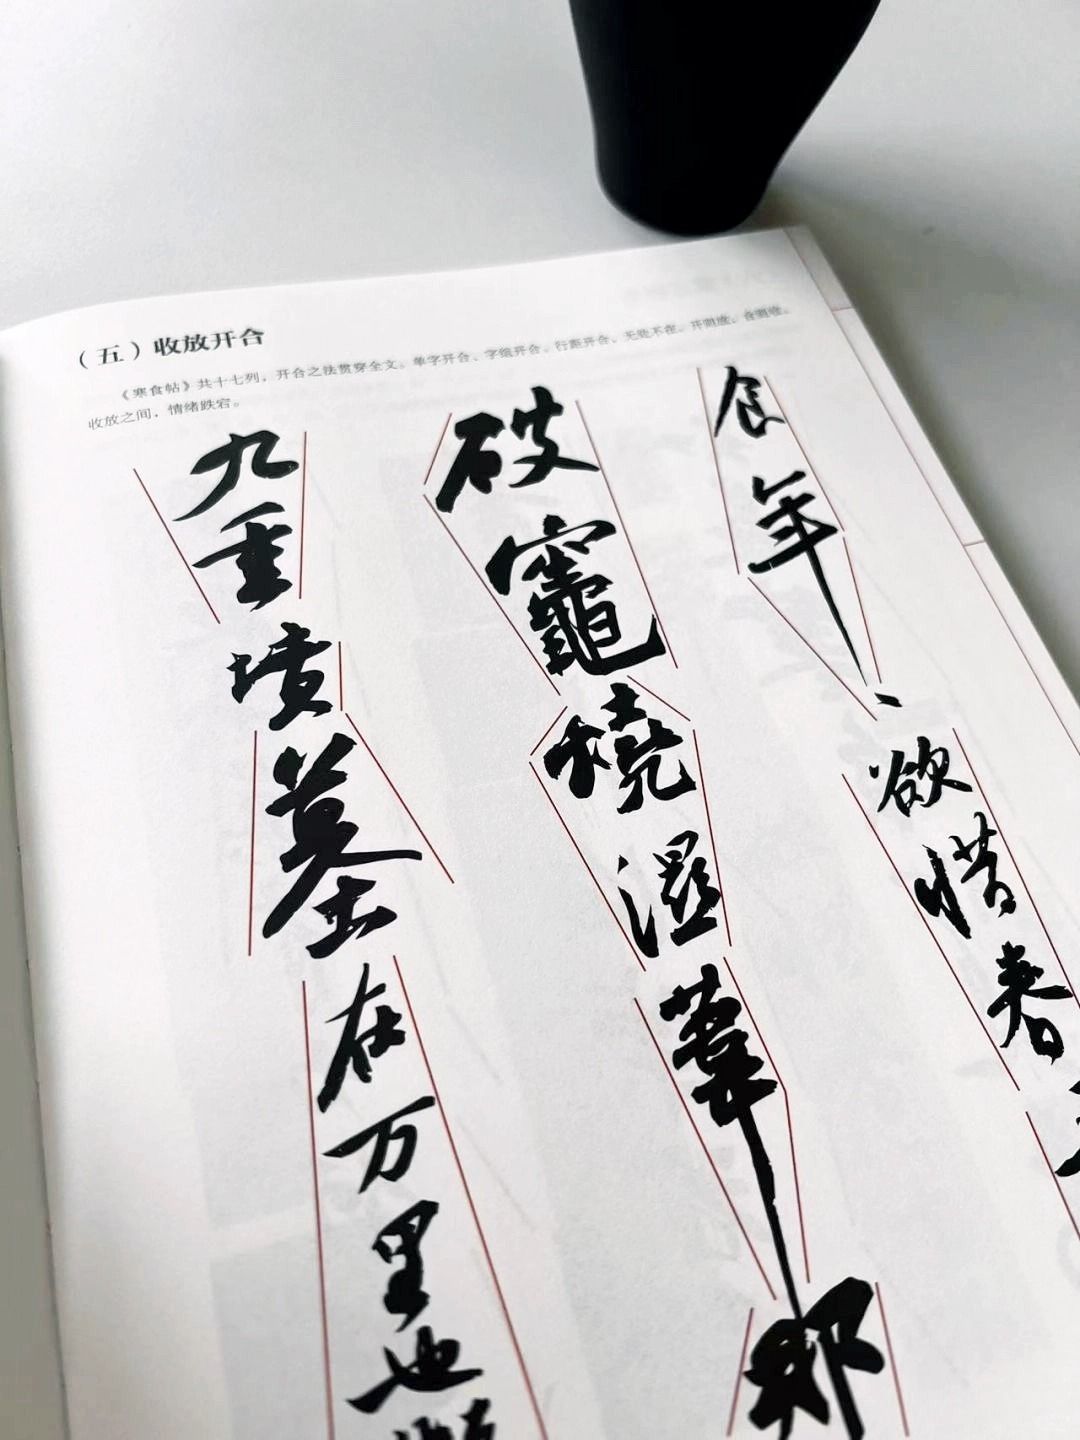 （五）收放开合
《寒食帖》共十七列，开合之法贯穿全文。单字开合、字组开合、行距开合，无处不在。开则放，合则收。
收放之间，情绪跌宕。
食年、欲惜春
破竈燒濕葦那
九重墳墓在万里也